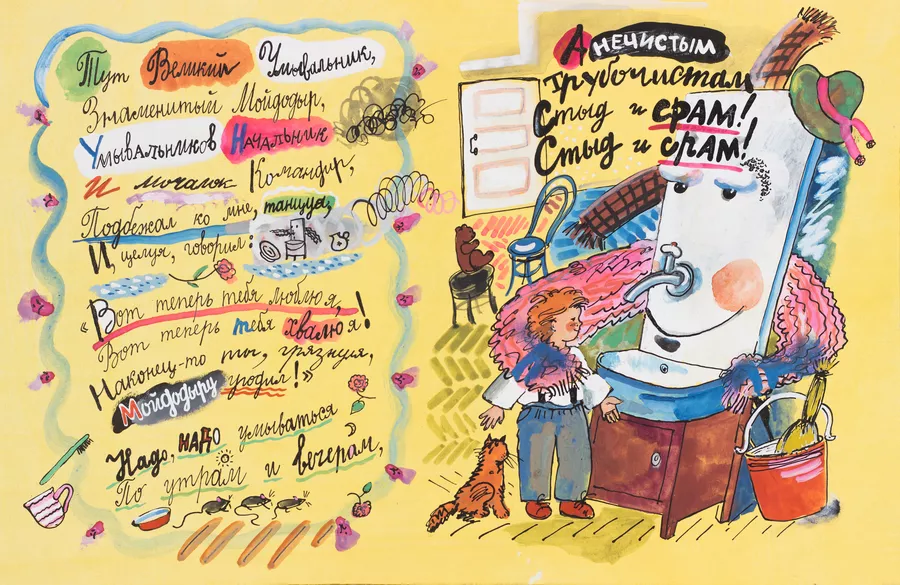 Тут Великий Умывальник,
Знаменитый Мойдодыр,
Умывальников Начальник
И мочалок Командир,
Подбежал ко мне, танцуя,
И, целуя, говорил:
"Вот теперь тебя люблю я,
Вот теперь тебя хвалю я!
Наконец-то ты, грязнуля,
Мойдодыру угодил!"
Надо, надо умываться
По утрам и вечерам,
А нечистым
Трубочистам
Стыд и СРАМ!
Стыд и срам!